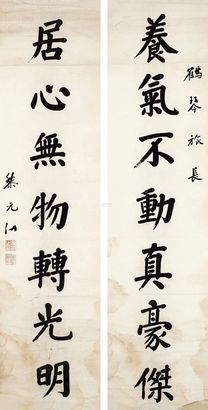 鶴琴旅長
養氣不動真豪傑
居心無物轉光明
黎元洪